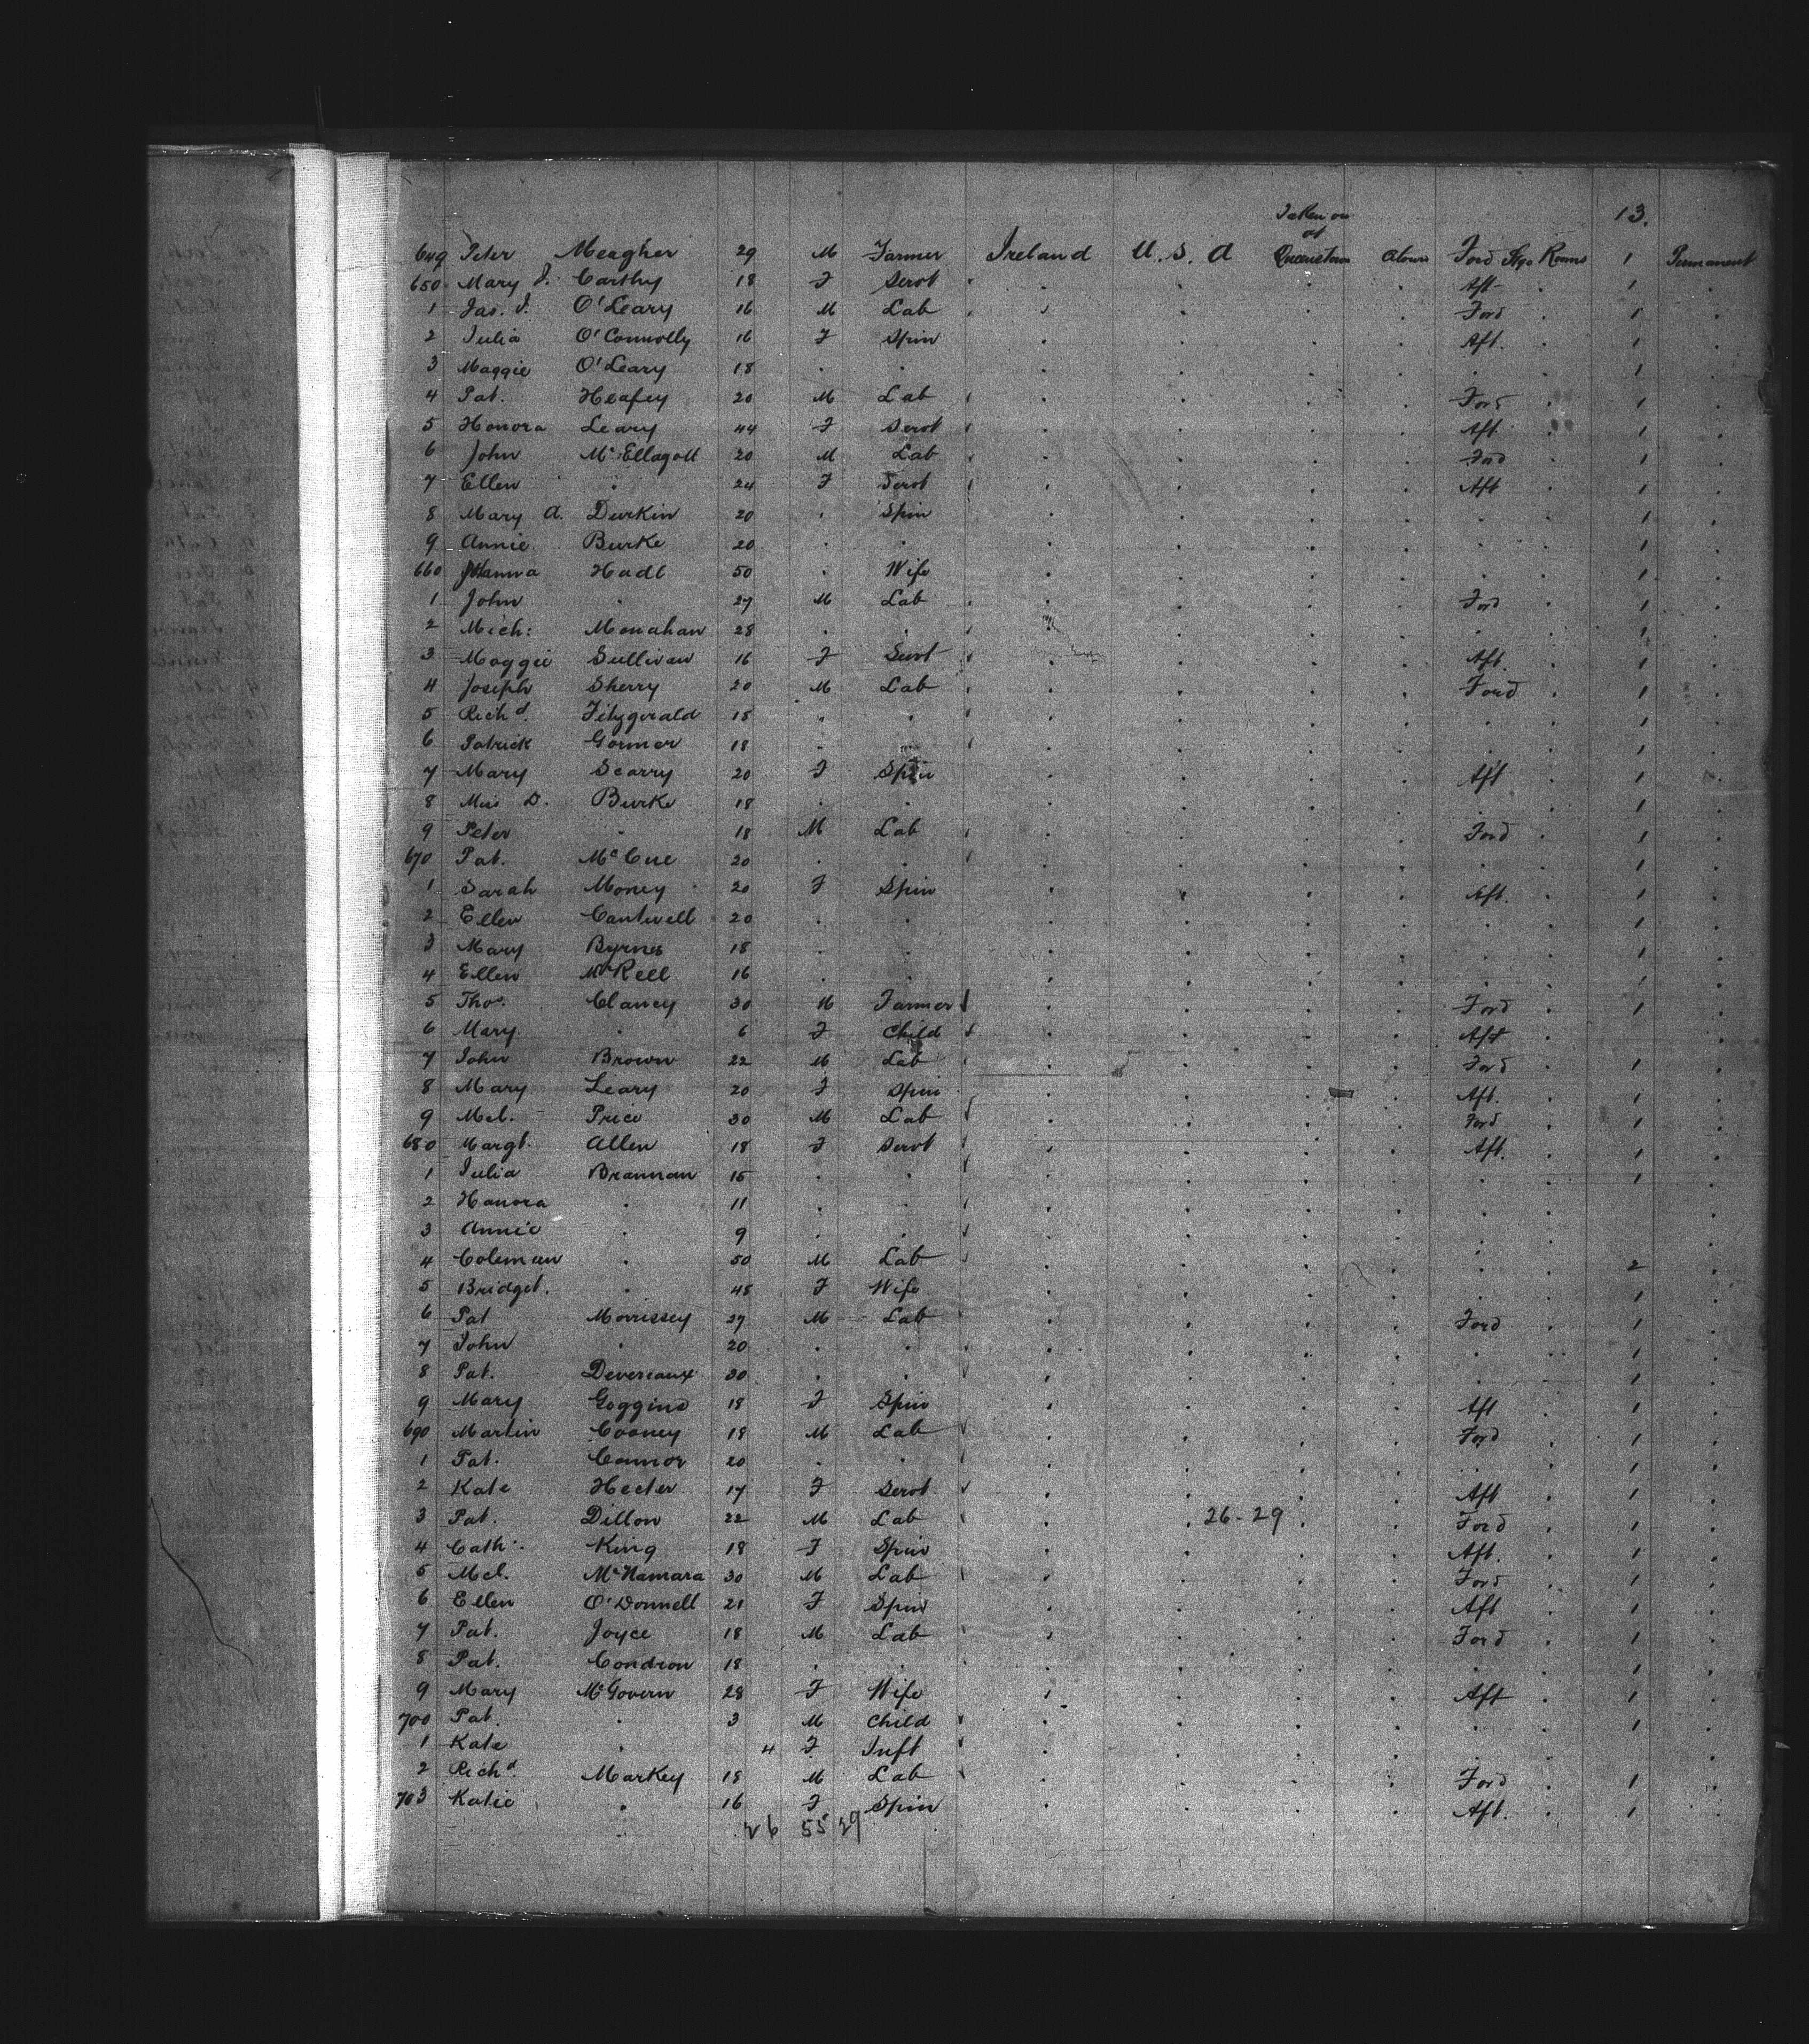 Taken on 13.
at
649 Peter Meagher 29 M Farmer Ireland U. S. A Queenstown Ford Stge Rooms 1 Permanent
650 Mary J. Carthy 18 F Servt . . . . Aft . 1 .
1 Jas. J. O'Leary 16 M Lab . . . . Ford . 1 .
2 Julia O'Connolly 16 F Spin . . . . Aft. . 1 .
3 Maggie O'Leary 18 . . . . . . . . 1 .
4 Pat. Heafey 20 M Lab . . . . Ford . 1 .
5 Honora Leary 44 F Servt . . . . Aft . 1 .
6 John McEllagott 20 M Lab . . . . Ford . 1 .
7 Ellen . 24 F Servt . . . . Aft . 1 .
8 Mary A. Durkin 20 . Spin . . . . . . 1 .
9 Annie Burke 20 . . . . . . . . 1 .
660 Hadl 50 . Wife . . . . . . 1 .
1 John . 27 M Lab . . . . Ford . 1 .
2 Mich: Monahan 28 . . . . . . . . 1 .
3 Maggie Sullivan 16 F Servt . . . . Aft. . 1 .
4 Joseph Sherry 20 M Lab . . . . Ford . 1 .
5 Richd. Fitzgerald 18 . . . . . . . . 1 .
6 Patrick Gormer 18 . . . . . . . . 1 .
7 Mary Scarry 20 F Spin . . . . Aft . 1 .
8 Miss D. Burke 18 . . . . . . . . 1 .
9 Peter . 18 M Lab . . . . Ford . 1 .
670 Pat. McCue 20 . . . . . . . . 1 .
1 Sarah Money 20 F Spin . . . . Aft. . 1 .
2 Ellen Cantwell 20 . . . . . . . . 1 .
3 Mary Byrnes 18 . . . . . . . . 1 .
4 Ellen McKell 16 . . . . . . . . 1 .
5 Thos. Clancy 30 M Farmer . . . . Ford . 1 .
6 Mary . 6 F Child . . . . Aft . .
7 John Brown 22 M Lab . . . . Ford . 1 .
8 Mary Leary 20 F Spin . . . . Aft. . 1 .
9 Mcl. Price 30 M Lab . . . . Ford . 1 .
680 Margt. Allen 18 F Servt . . . . Aft. . 1 .
1 Julia Brannan 15 . . . . . . . . 1 .
2 Hanora . 11 . . . . . . . . .
3 Annie . 9 . . . . . . . . .
4 Coleman . 50 M Lab . . . . . . 2 .
5 Bridget. . 45 F Wife . . . . . . 1 .
6 Pat Morrissey 27 M Lab . . . . Ford . 1 .
7 John . 20 . . . . . . . . 1 .
8 Pat. Devereaux 30 . . . . . . . . 1 .
9 Mary Goggins 18 F Spin . . . . Aft . 1 .
690 Martin Cooney 18 M Lab . . . . Ford . 1 .
1 Pat. Connor 20 . . . . . . . . 1 .
2 Kate Hecter 17 F Servt . . . . Aft . 1 .
3 Pat. Dillon 22 M Lab . . 26-29 . . Ford . 1 .
4 Cath: King 18 F Spin . . . . Aft. . 1 .
5 Mcl. McNamara 30 M Lab . . . . Ford . 1 .
6 Ellen O'Donnell 21 F Spin . . . . Aft . 1 .
7 Pat. Joyce 18 M Lab . . . . Ford . 1 .
8 Pat. Condron 18 . . . . . . . . 1 .
9 Mary McGovern 28 F Wife . . . . Aft . 1 .
700 Pat. . 3 M Child . . . . . . 1 .
1 Kate . 4 F Inft . . . . . . .
2 Richd. Markey 18 M Lab . . . . Ford . 1 .
703 Katie . 16 F Spin . . . . Aft. . 1 .
26 55 29